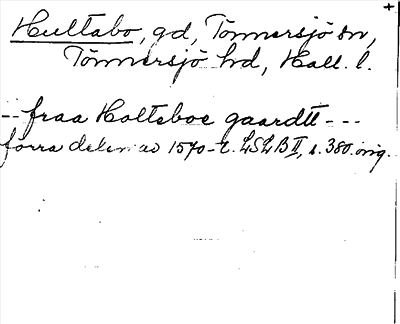 +
Hultabo, gd, Tönnersjö sn,
Tönnersjö hd, Hall. l.
-- fraa Holteboe gaardtt ---
förra delen av 1570-t. LSLB II, s. 380. orig.